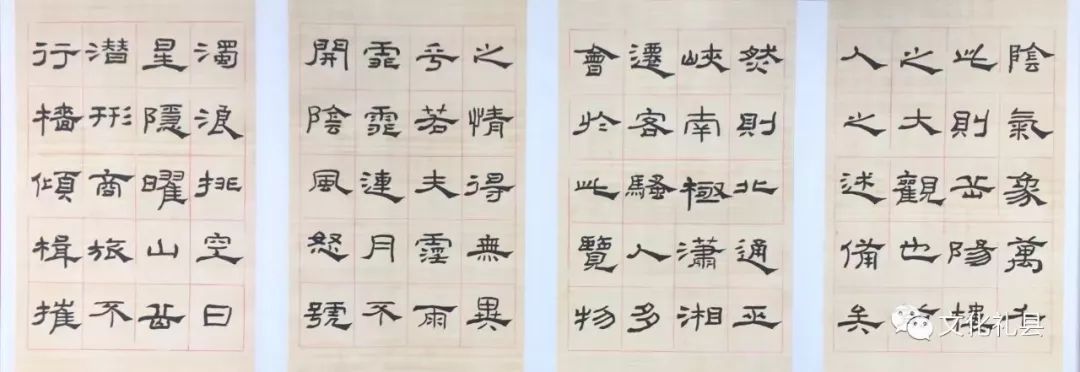 陰氣象萬千
此則岳陽樓
之大觀也
人之述備矣
然則北通巫
峽南極瀟湘
遷客騷人多
會於此覽物
之情得無異
乎若夫霪雨
霏霏連月不
開陰風怒號
濁浪排空日
星隱曜山岳
潜形商旅不
行檣傾楫摧
文化礼县